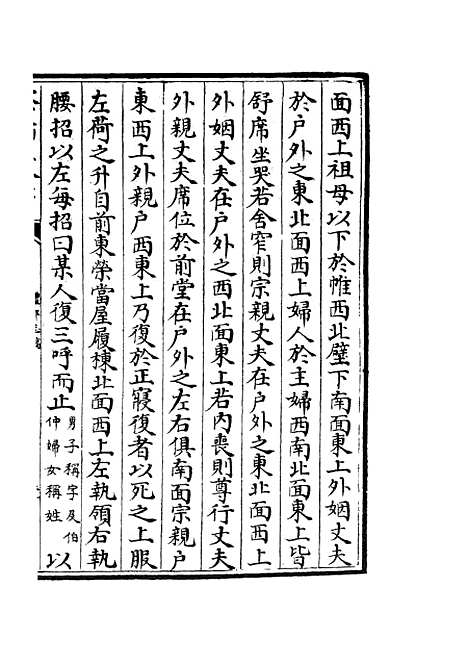 面西上祖母以下於帷西北壁下南面東上外姻丈夫
於户外之東北面西上婦人於主婦西南北面東上皆
舒席坐哭若舍窄則宗親丈夫在户外之東北面西上
外姻丈夫在户外之西北面東上若内喪則尊行丈夫
外親丈夫席位於前堂在户外之左右俱南面宗親户
東西上外親户西東上乃復於正寢復者以死之上服
左荷之升自前東榮當屋履棟北面西上左執領右執
腰招以左每招曰某人復三呼而止男子稱字及伯仲婦女稱姓以